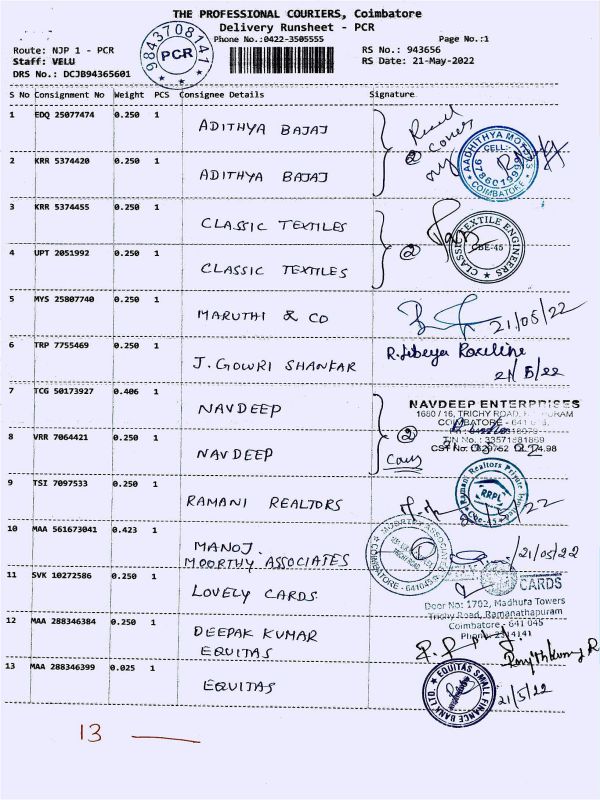 THE PROFESSIONAL COURIERS, Coimbatore
Delivery Runsheet - PCR
Phone No.:0422-3505555
Page No.:1
Route: NJP 1 - PCR
Staff: VELU
DRS No.: DCJB94365601
9843708141
PCR
RS No.: 943656
RS Date: 21-May-2022
S No Consignment No Weight PCS Consignee Details Signature
1 EDQ 25077474 0.250 1 ADITHYA BAJAJ
2 KRR 5374420 0.250 1 ADITHYA BAJAJ
2 cover
AADHITHYA MOTORS
CELL:-
COIMBATORE
3 KRR 5374455 0.250 1 CLASSIC TEXTILES
4 UPT 2051992 0.250 1 CLASSIC TEXTILES
2
CLASSIC TEXTILE ENGINEERS
CBE-45
5 MYS 25807740 0.250 1 MARUTHI & CO
21/05/22
6 TRP 7755469 0.250 1 J. GOWRI SHANKAR
21/5/22
7 TCG 50173927 0.406 1 NAVDEEP
8 VRR 7064421 0.250 1 NAVDEEP
2
NAVDEEP ENTERPRISES
1680 / 16, TRICHY ROAD,
COIMBATORE - 641
9 TSI 7097533 0.250 1 RAMANI REALTORS
Ramani Realtors Private Limited
RRPL
10 MAA 561673041 0.423 1 MANOJ.
MOORTHY ASSOCIATES
MOORTHY ASSOCIATES
21/05/22
11 SVK 10272586 0.250 1 LOVELY CARDS
CARDS
Door No: 1702, Madhura Towers
Trichy Road, Ramanathapuram
Coimbatore - 641 045
Phone: 2314141
12 MAA 288346384 0.250 1 DEEPAK KUMAR
EQUITAS
13 MAA 288346399 0.025 1 EQUITAS
EQUITAS SMALL FINANCE BANK LTD.
21/5/22
13